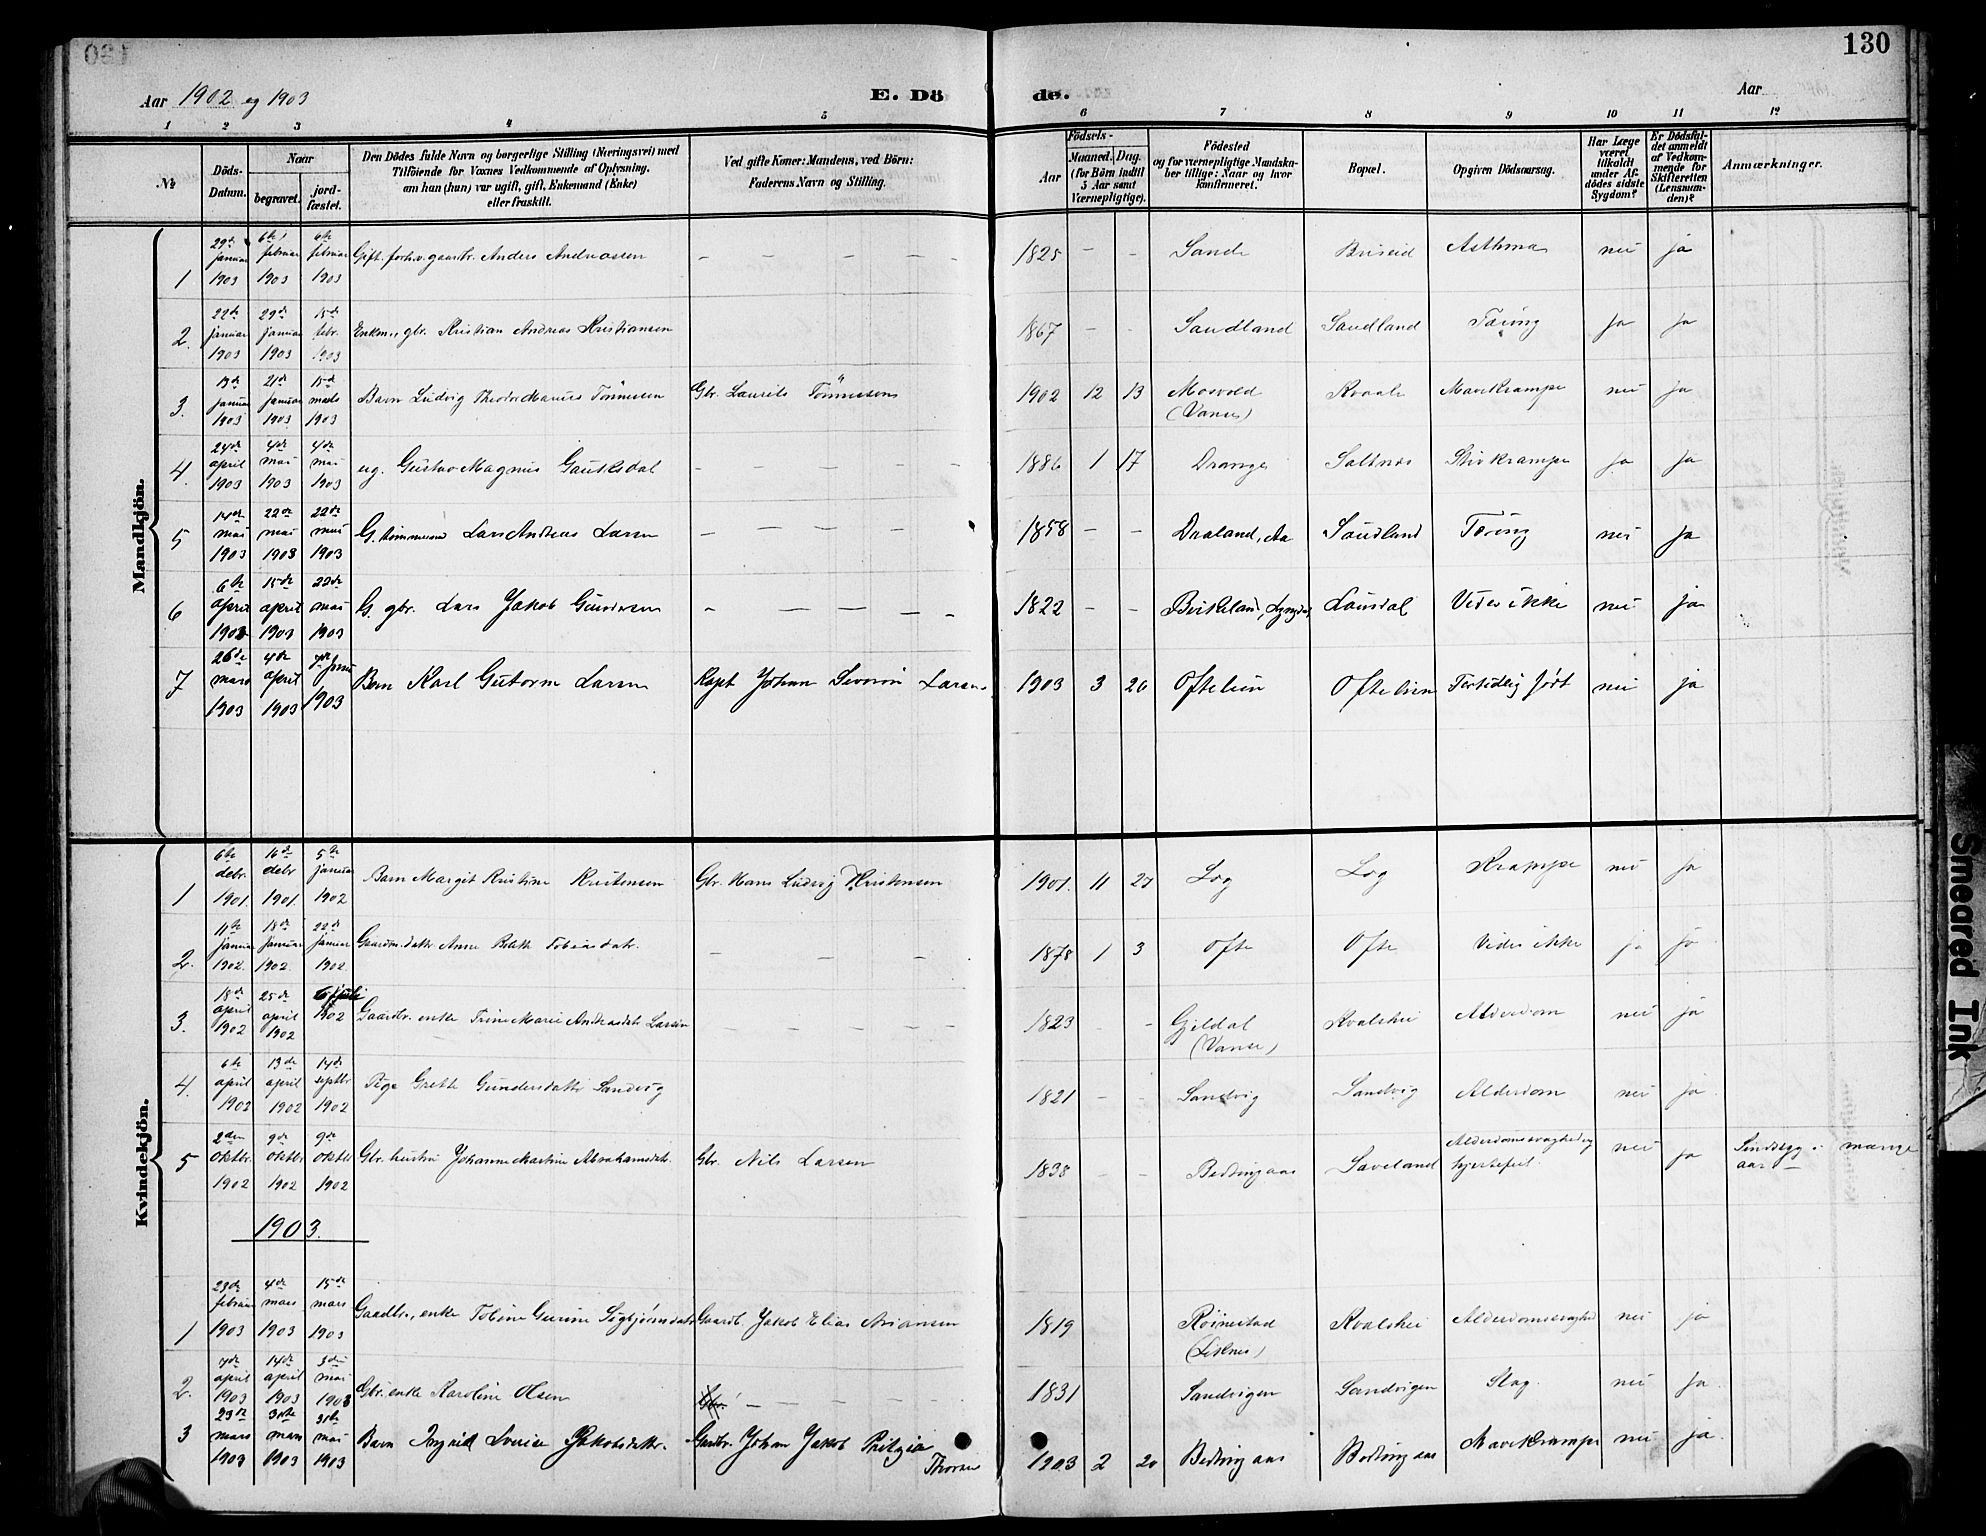 130
Aar 1902 og 1903
E. Dö
de.
Aar
1 2 3 4 5 6 7 8 9 10 11 12
№
Döds-Datum.
Naar
begravet.
jord-fæstet.
Den Dödes fulde Navn og borgerlige Stilling (Næringsvei) med
Tilföiende for Voxnes Vedkommende af Oplysning,
om han (hun) var ugift, gift, Enkemand (Enke)
eller fraskilt.
Ved gifte Koner: Mandens, ved Börn:
Faderens Navn og Stilling.
Födsels-
Aar
Maaned. Dag.
(for Börn indtil
5 Aar samt
Værnepligtige).
Födested
og for værnepligtige Mandska-
ber tillige: Naar og hvor
konfirmeret.
Bopæl.
Opgiven Dödsaarsag.
Har Læge
været
tilkaldt
under Af-
dödes sidste
Sygdom?
Er Dödsfal-
det anmeldt
af Vedkom-
mende for
Skifteretten
(Lensman-
den)?
Anmærkninger.
Mandkjön.
1 29de januar 1903 6te februar 1903 6te februar 1903 Gift. forh.v. gaardbr. Anders Andreassen — 1825 — — Sande Briseid Asthma nei ja
2. 22de januar 1903 29de januar 1903 15de febr. 1903 Enkm., gbr. Kristian Andreas Kristiansen 1867 — — Sandland Sandland Tæring ja ja
3. 13de januar 1903 21de januar 1903 15de mars 1903 Barn Ludvig Theodor Marius Tönnesen Gbr. Laurits Tönnessens 1902 12 13 Mosvold (Vanse) Kvaale Mavekrampe nei ja
4. 24de april 1903 4de mai 1903 4de mai 1903 ug. Gustav Magnus Gauksdal — 1886 1 17 Drange Saltnes Stivkrampe ja ja
5 14de mai 1903 22de mai 1903 22de mai 1903 G. tömmermand Lars Andreas Larsen — 1858 — — Draland, Aa Sandland Tæring nei ja
6 6te april 1903 15de april 1903 22de mai 1903 G. gbr. Lars Jakob Gundersen — 1822 — — Birkeland, Lyngdal Lausdal Vides ikke nei ja
7 26de mars 1903 4de april 1903 7de juni 1903 Barn Karl Gutorm Larsen Kapt Johan Severin Larsens 1903 3 26 Oftebun Oftebun Fortidlig født nei ja
Kvindekjön.
1 6te debr. 1901. 16de debr 1901. 5te januar 1902 Barn Margit Kristine Kristensen Gbr. Hans Ludvig Kristensen 1901. 11 27 Log Log Krampe nei ja
2. 11te januar 1902. 18de januar 1902. 22de januar 1902. Gaardm.datter Anne Tobiasdatr. — 1878 1 3 Ofte Ofte Vides ikke ja ja
3. 18de april 1902 25de april 1902 6 juli 1902 Gaardbr. enke Trine Marie Andreasdatr Larsen — 1823 — Gjeldal (Vanse) Kvalshei Alderdom nei ja
4. 6te april 1902 13de april 1902 14de septbr 1902 Pige Grethe Gundersdatter Sandvig 1821 — — Sandvig Sandvig Alderdom nei ja.
5 2den oktbr. 1902 9de oktbr 1902 9de oktbr 1902 Gbr. hustru Johanne Martine Abrahamsdatr. Gbr. Nils Larsen 1838 — — Bedringaas Saveland Alderdomssvaghed og hjertefeil. nei ja Sindssyg i mange aar —
1903.
1 23de februar 1903 4de mars 1903 15de mars 1903 Gaardbr., enke Tobine Gurine Sigbjörnsdatr Gaardb. Jakob Elias Ariansen 1819 Röinestad (Liknes) Kvalshei Alderdomssvaghed nei ja
2. 7de april 1903 14de april 1903 3die mai 1903 Gbr. enke Karoline Olsen Gbr. — 1831 Sandvigen Sandvigen Slag. nei ja.
3 23de mars 1903 31te mars 1903 31te mai 1903 Barn Ingrid Lovise Jakobsdatr. Gaardbr. Johan Jakob Thorsen 1903 2 20 Bedringaas Bedringaas Mavekrampe nei ja.
Smeared Ink